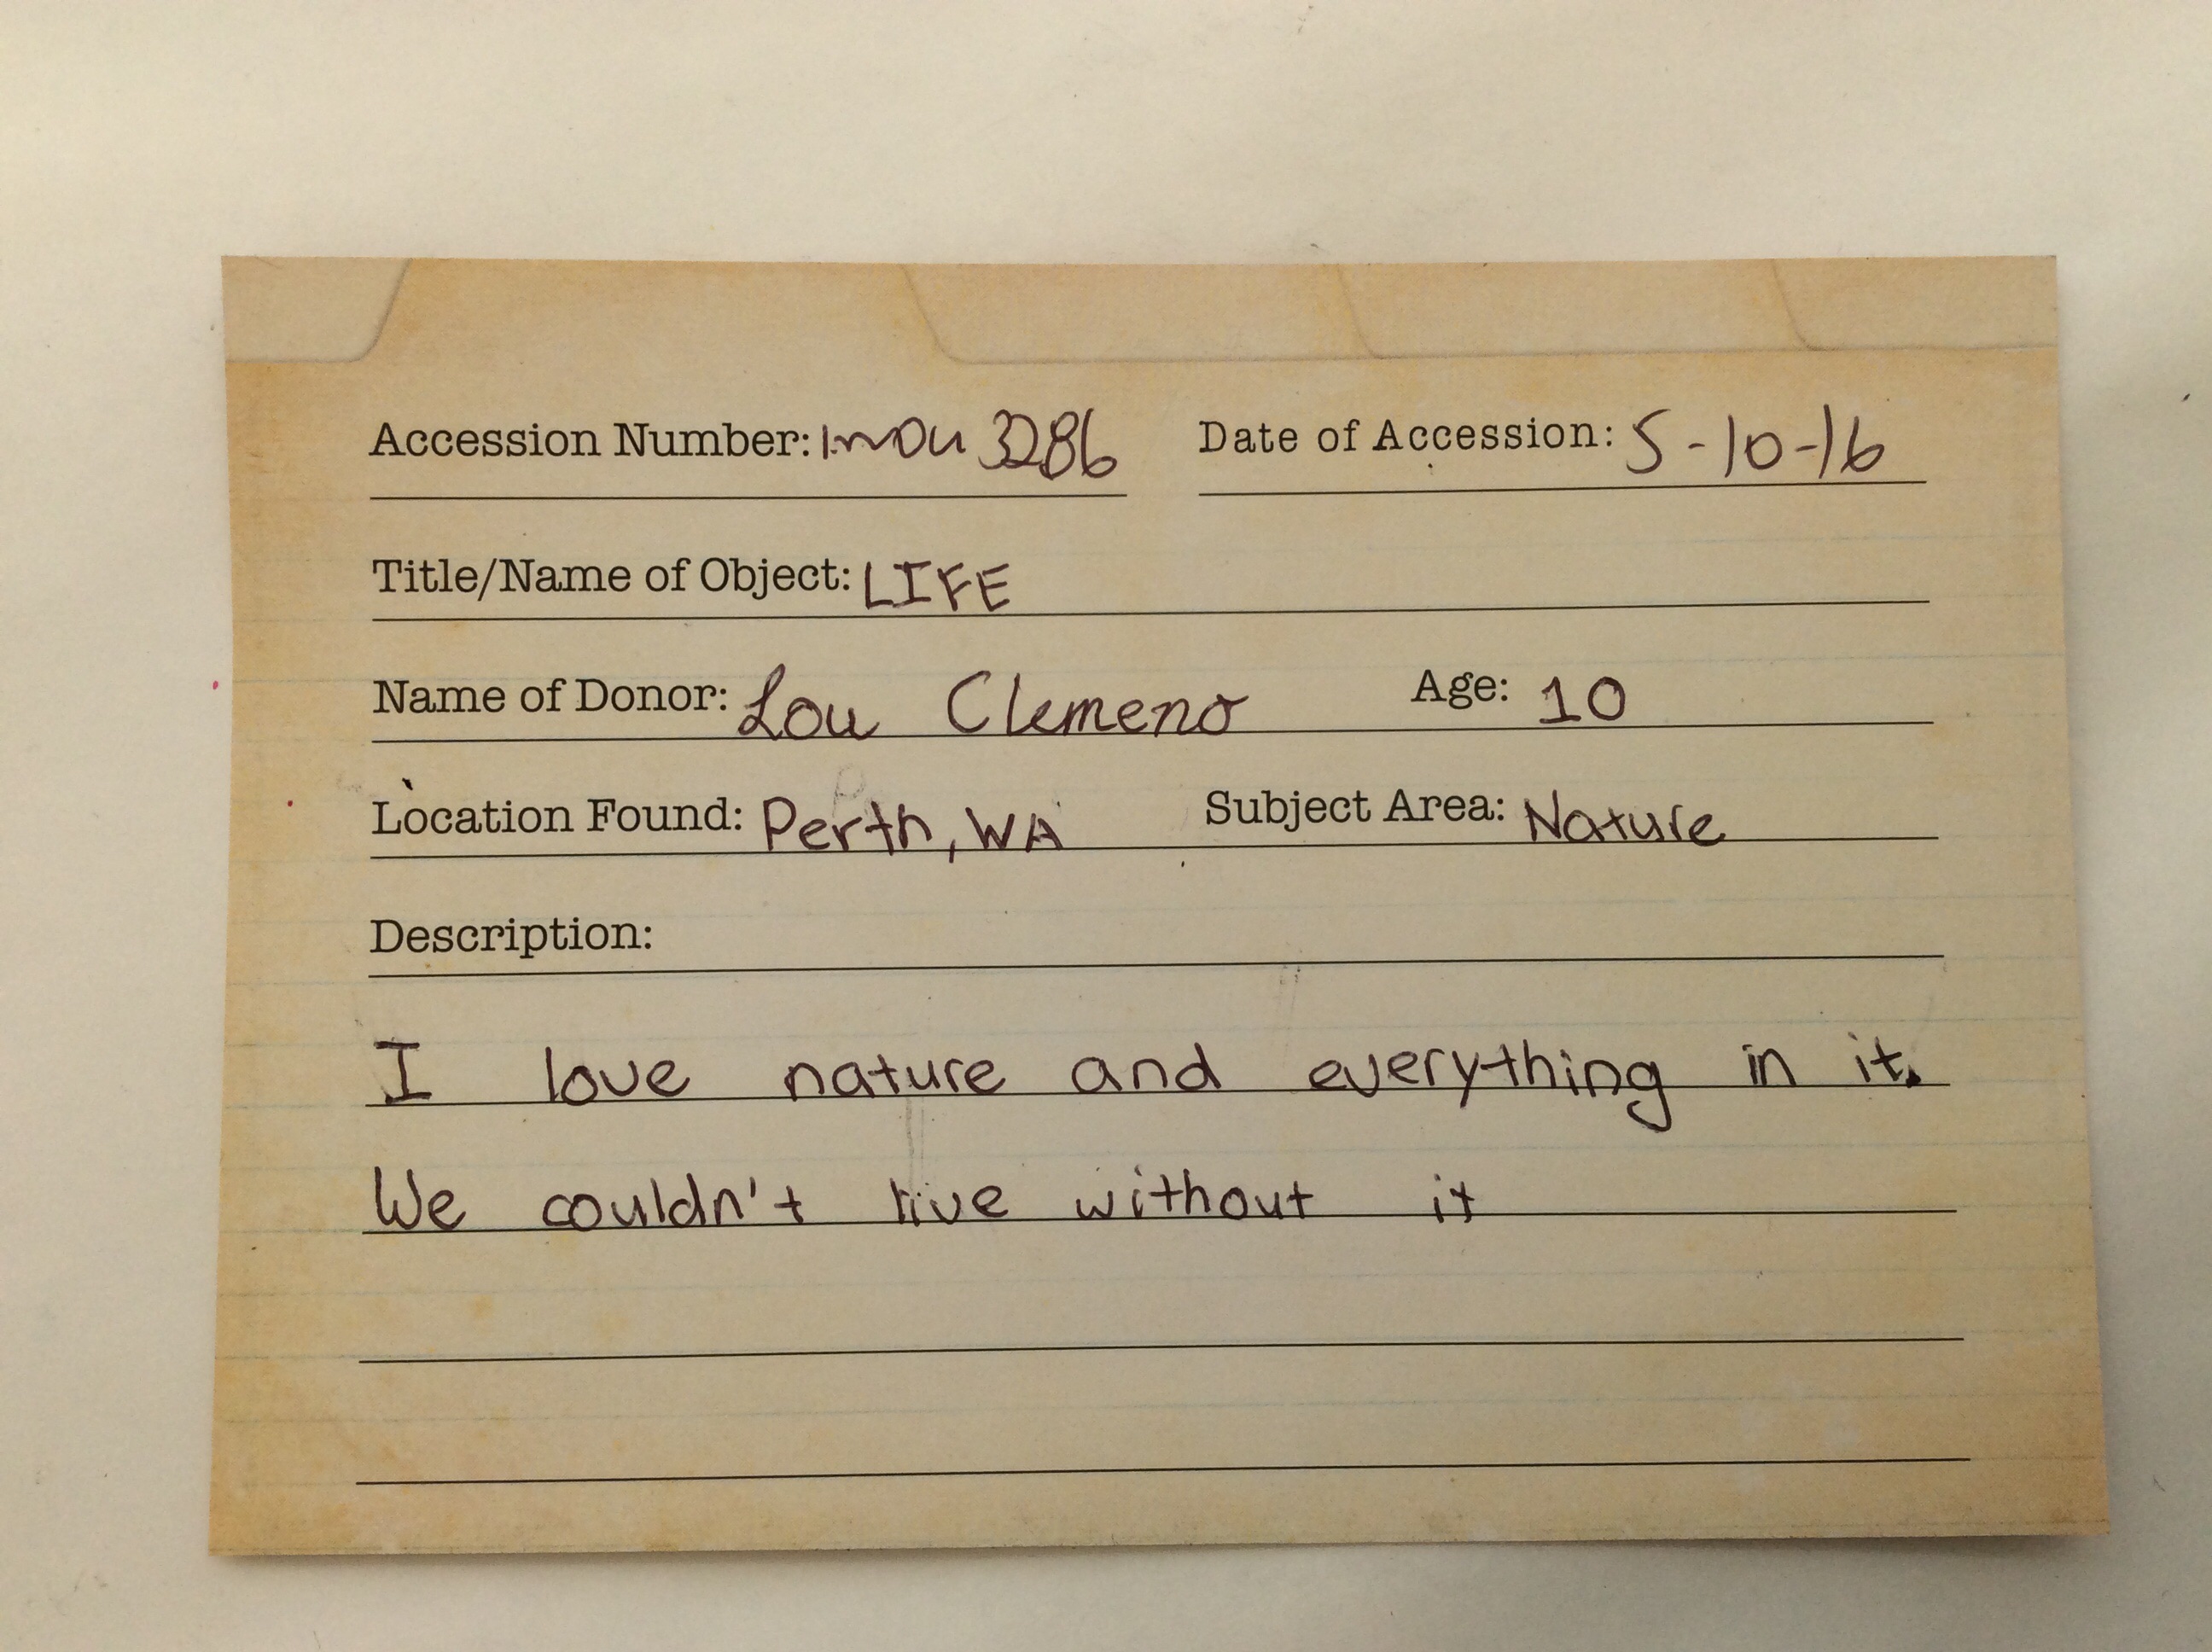 Accession Number: 3286 Date of Accession: 5-10-16
Title/Name of Object: LIFE
Name of Donor: Lou Clemeno Age: 10
Location Found: Perth, WA Subject Area: Nature
Description:
I love nature and everything in it.
We couldn't live without it